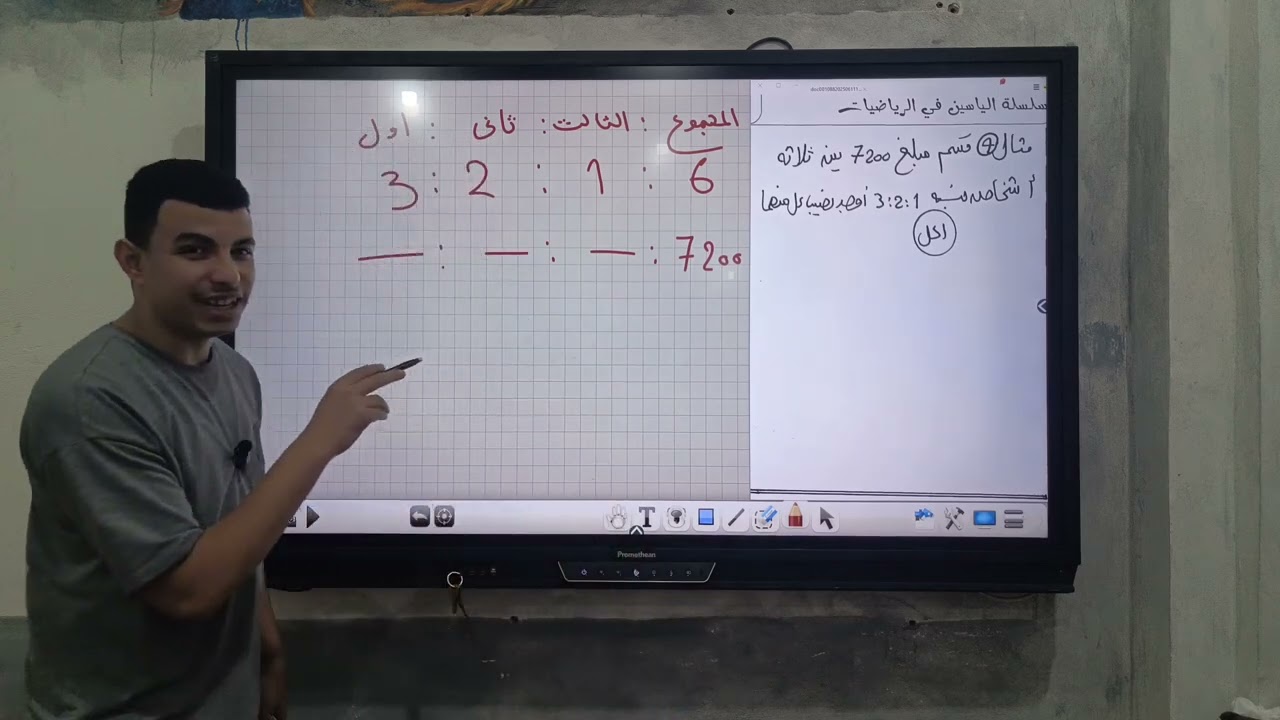 سلسلة الياسين في الرياضيات
مثال 4 قسم مبلغ 7200 بين ثلاثه
أشخاص بنسبه 3:2:1 أوجد نصيب كل منهما
الحل
اول : ثانى : الثالث : المجموع
3 : 2 : 1 : 6
— : — : — : 7200
T
Promethean